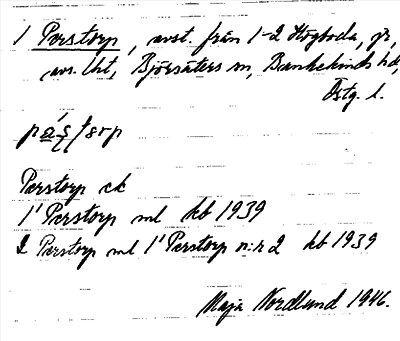 1 Perstorp, avst. från 1-2 Högboda, jr,
avs. lht, Björsäters sn, Bankekinds hd,
Östg. l.
Perstorp ek
1¹ Perstorp ml kb 1939
2 Perstorp ml 1¹ Perstorp n:r 2 kb 1939
Maja Nordlund 1946.